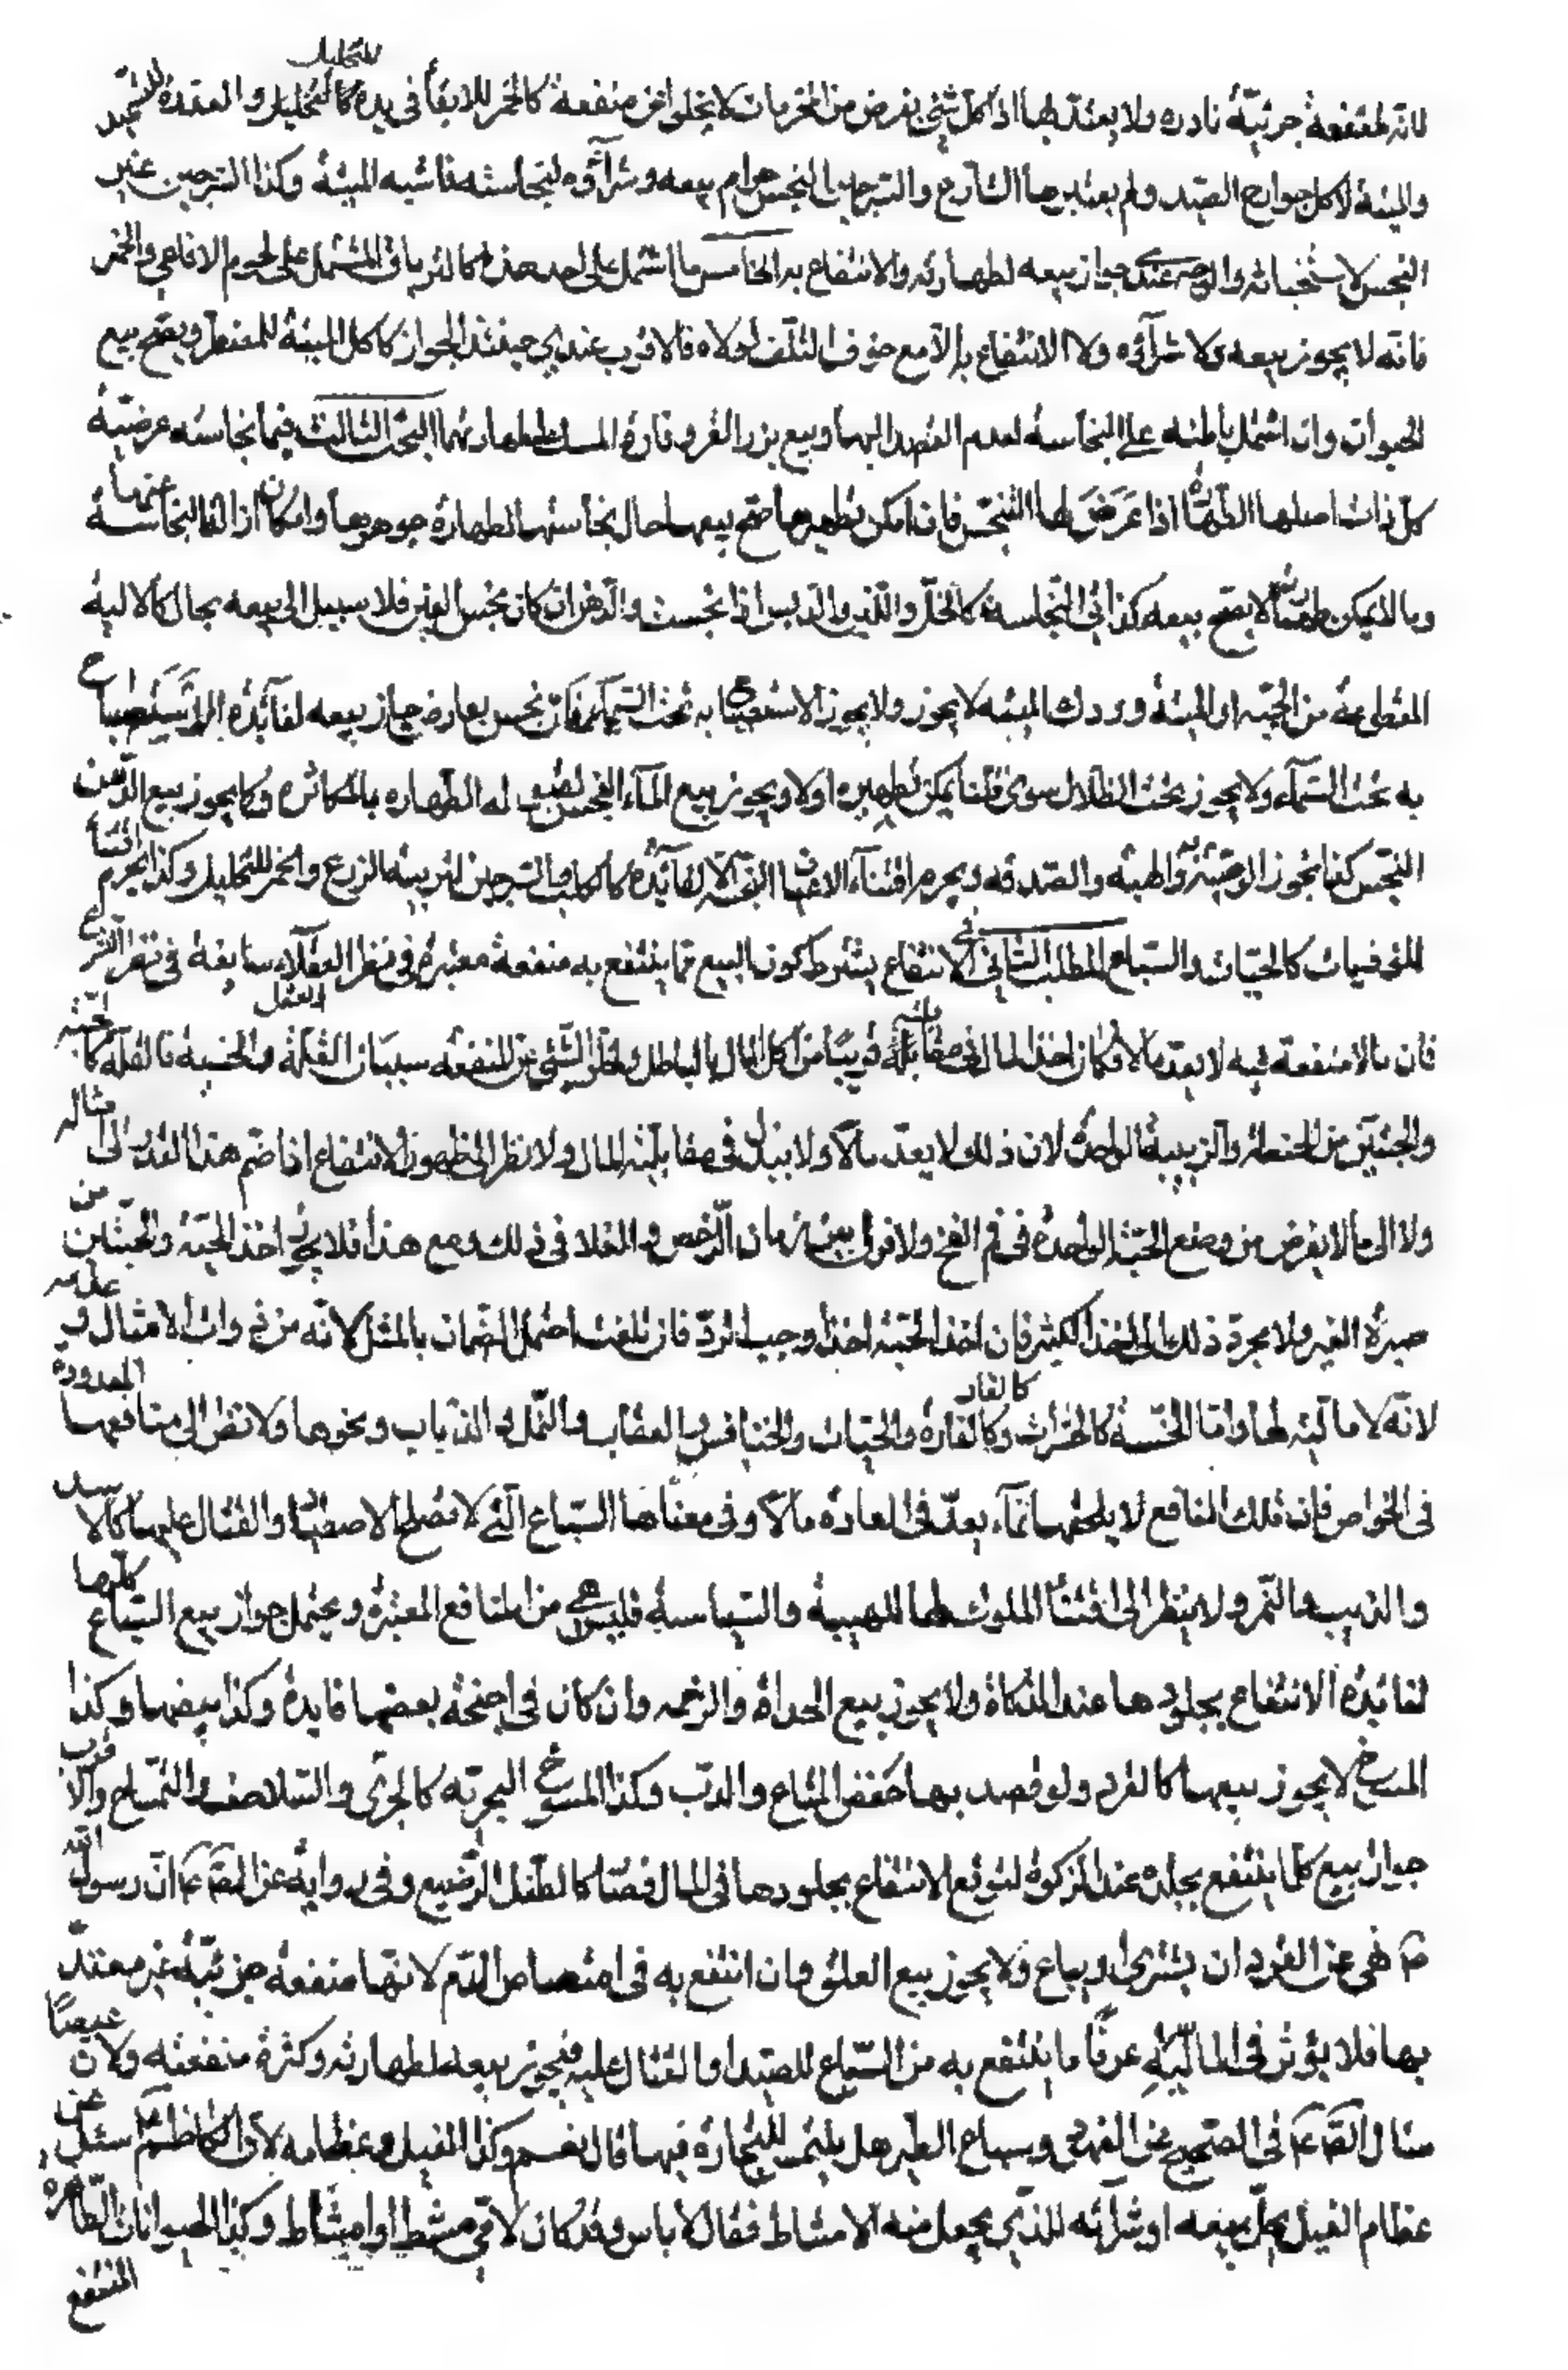 لانه لمنفعة جزئيّة نادره ولا يعتدّ بها اذ كل شئ يفرض من المحرمات لا يخلوا عن منفعة كالخمر للابقاء فى يده كالتخليل للتخليل و العقدة للتجيد
والميتة لاكل جوارح الصيد ولم يعتبرها الشارع والسرجين النجس حرام بيعه وشرآؤه لنجاسته فاشبه الميتة وكذا السرجين غير
النجس لاستخباثه والوجه عندى جواز بيعه لطهارته والانتفاع به الخامس ما اشتمل على احد هذه كالترياق المشتمل على لحوم الافاعى والخمر
فانه لا يجوز بيعه ولا شرآئه ولا الانتفاع به الّا مع خوف التلف لولاه فالاقرب عندى حينئذ الجواز كاكل الميتة للمضطر ويصح بيع
الحيوان وان اشتمل باطنه على النجاسة لعدم القصد اليها وبيع بزر القز وفارة المسك لطهارتهما البحث الثالث فيما نجاسته عرضيّة
كل ذات اصلها الطهارة اذا عَرَضَ لها التنجّس فان امكن تطهيرها صحّ بيعها حال نجاستها لطهارة جوهرها وامكان ازالة النجاسة عنها
وما لا يمكن طهارته لا يصح بيعه كذائى النجاسة كالخلّ واللبن والدبس اذا نجست والدهن ان كان نجس العين فلا سبيل الى بيعه بحال كالالية
المقطوعة من الحيّة او الميتة وودك الميتة لا يجوز ولا يجوز الاستصباح به تحت السماء فان نجس بعارض جاز بيعه لفآئدة الاستصباح
به تحت السّمآء ولا يجوز تحت الظلال سوى قلنا يمكن تطهيره او لا ويجوز بيع المآء النجس لقبوله الطهاره بالمكاثره ولا يجوز بيع الدّهن
النجس كذا تجوز الوصيّة به والهبة والصدقه ويحرم اقتنآء الاعيان النجسة الّا لفآئدة كالكلب والسرجين لتربية الزرع والخمر للتخليل وكذا يحرم اقتنآء
المؤذيات كالحيّات والسّباع المطلب الثانى فى الانتفاع يشترط كون المبيع مما ينتفع به منفعة معتبرة فى نظر العقلآء سايغة فى نظر الشرع
فان ما لا منفعة فيه لا يعدّ مالا فكان اخذ المال فى مقابلته قريبا من اكل المال بالباطل ولخلو الشئ عن المنفعه سببان القلّة والخسة فالقلّة كالحبّة
والحبّتين من الحنطة والزبيبة الواحدة لان ذلك لا يعدّ مالا ولا يبذل فى مقابلته المال ولا نظر الى ظهور الانتفاع اذا ضمّ هذا القدر الى امثاله
ولا الى ما لا يفرض من وضع الحبّة الواحدة فى فم الفخ ولا فرق بين زمان الرّخص والغلا فى ذلك ومع هذا فلا يجوز اخذ الحبّة والحبّتين من
صبرة الغير ولا يجرّ ذلك الى اخذ الكثير فان اخذ الحبّة اخذا وجب الردّ فان تلفت احتمل الضّمان بالمثل لانه من ذوات الامثال وعدمه
لانّه لا ماليّة لها وامّا الخسّة كالحشرات وكالفارة والحيات والخنافس والعقارب والنّمل والذباب ونحوها ولا نظر الى منافعها المعدودة
فى الخواص فان تلك المنافع لا يلحقها بما يعدّ فى العادة مالا وفى معناها السّباع الّتى لا تصلح للاصطياد والقتال عليها كالاسد
والذيب والنّمر ولا ينظر الى اقتناء الملوك لها للهيبة والسّياسة فليس من المنافع المعتبرة ويحتمل جواز بيع السّباع كلّها
لفائدة الانتفاع بجلودها عند الذكاة ولا يجوز بيع الحداة والرخمه وان كان فى اجنحة بعضها فايدة وكذا بيضها وكذا
المسوخ لا يجوز بيعها كالقرد ولو قصد بها حفظ المتاع والدبّ وكذا المسوخ البحريّه كالجرّى والسّلاحف والتّمساح والاقرب
جواز بيع كلّ ما ينتفع بجلده عند الذكوة لتوقع الانتفاع بجلودها فى المال فصار كالطفل الرّضيع وفى رواية عن الصّ ع انّ رسول اللّه
ص نهى عن القرد ان يشترى او يباع ولا يجوز بيع العلق وان انتفع به فى امتصاص الدّم لانّها منفعة جزئيّة غير معتدّ
بها فلا يؤثر فى الماليّة عرفا ما ينتفع به من السّباع للصيد او القتال عليه فيجوز بيعه لطهارته وكثرة منفعته ولان عيصا
سال الصّ ع فى الصحيح عن الفهود وسباع الطير هل يلتمس التجارة فيها قال نعم وكذا الفيل وعظامه لان الكاظم ع سئل عن
عظام الفيل يحل بيعه او شرآئه للذى يجعل منه الامشاط فقال لا باس وقد كان لابى مشط او امشاط وكذا الحيوانات الطّاهره
المنتفع